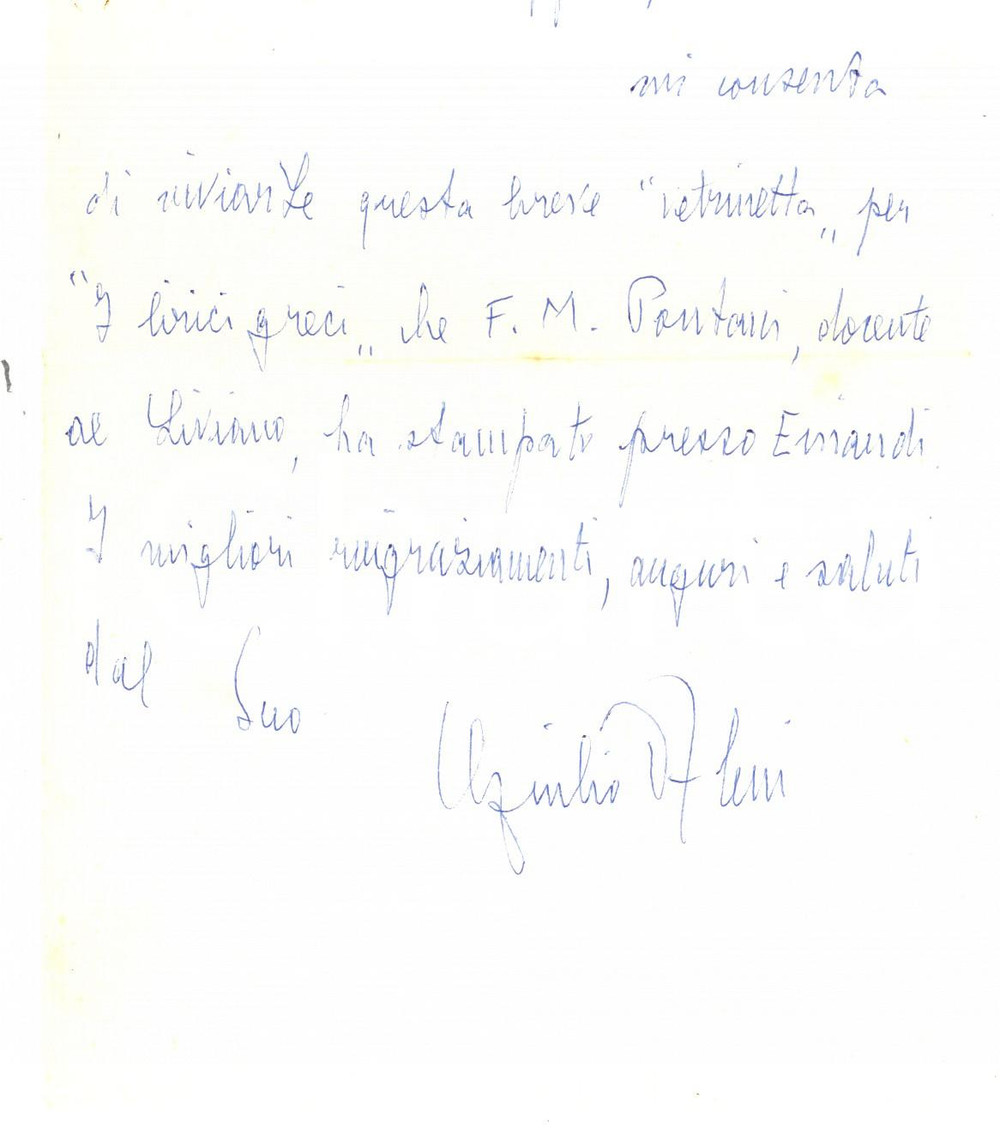 mi consenta
di inviarLe questa breve "vetrinetta„ per
"I lirici greci„ che F. M. Pontani, docente
al Liviano, ha stampato presso Einaudi.
I migliori ringraziamenti, auguri e saluti
dal Suo